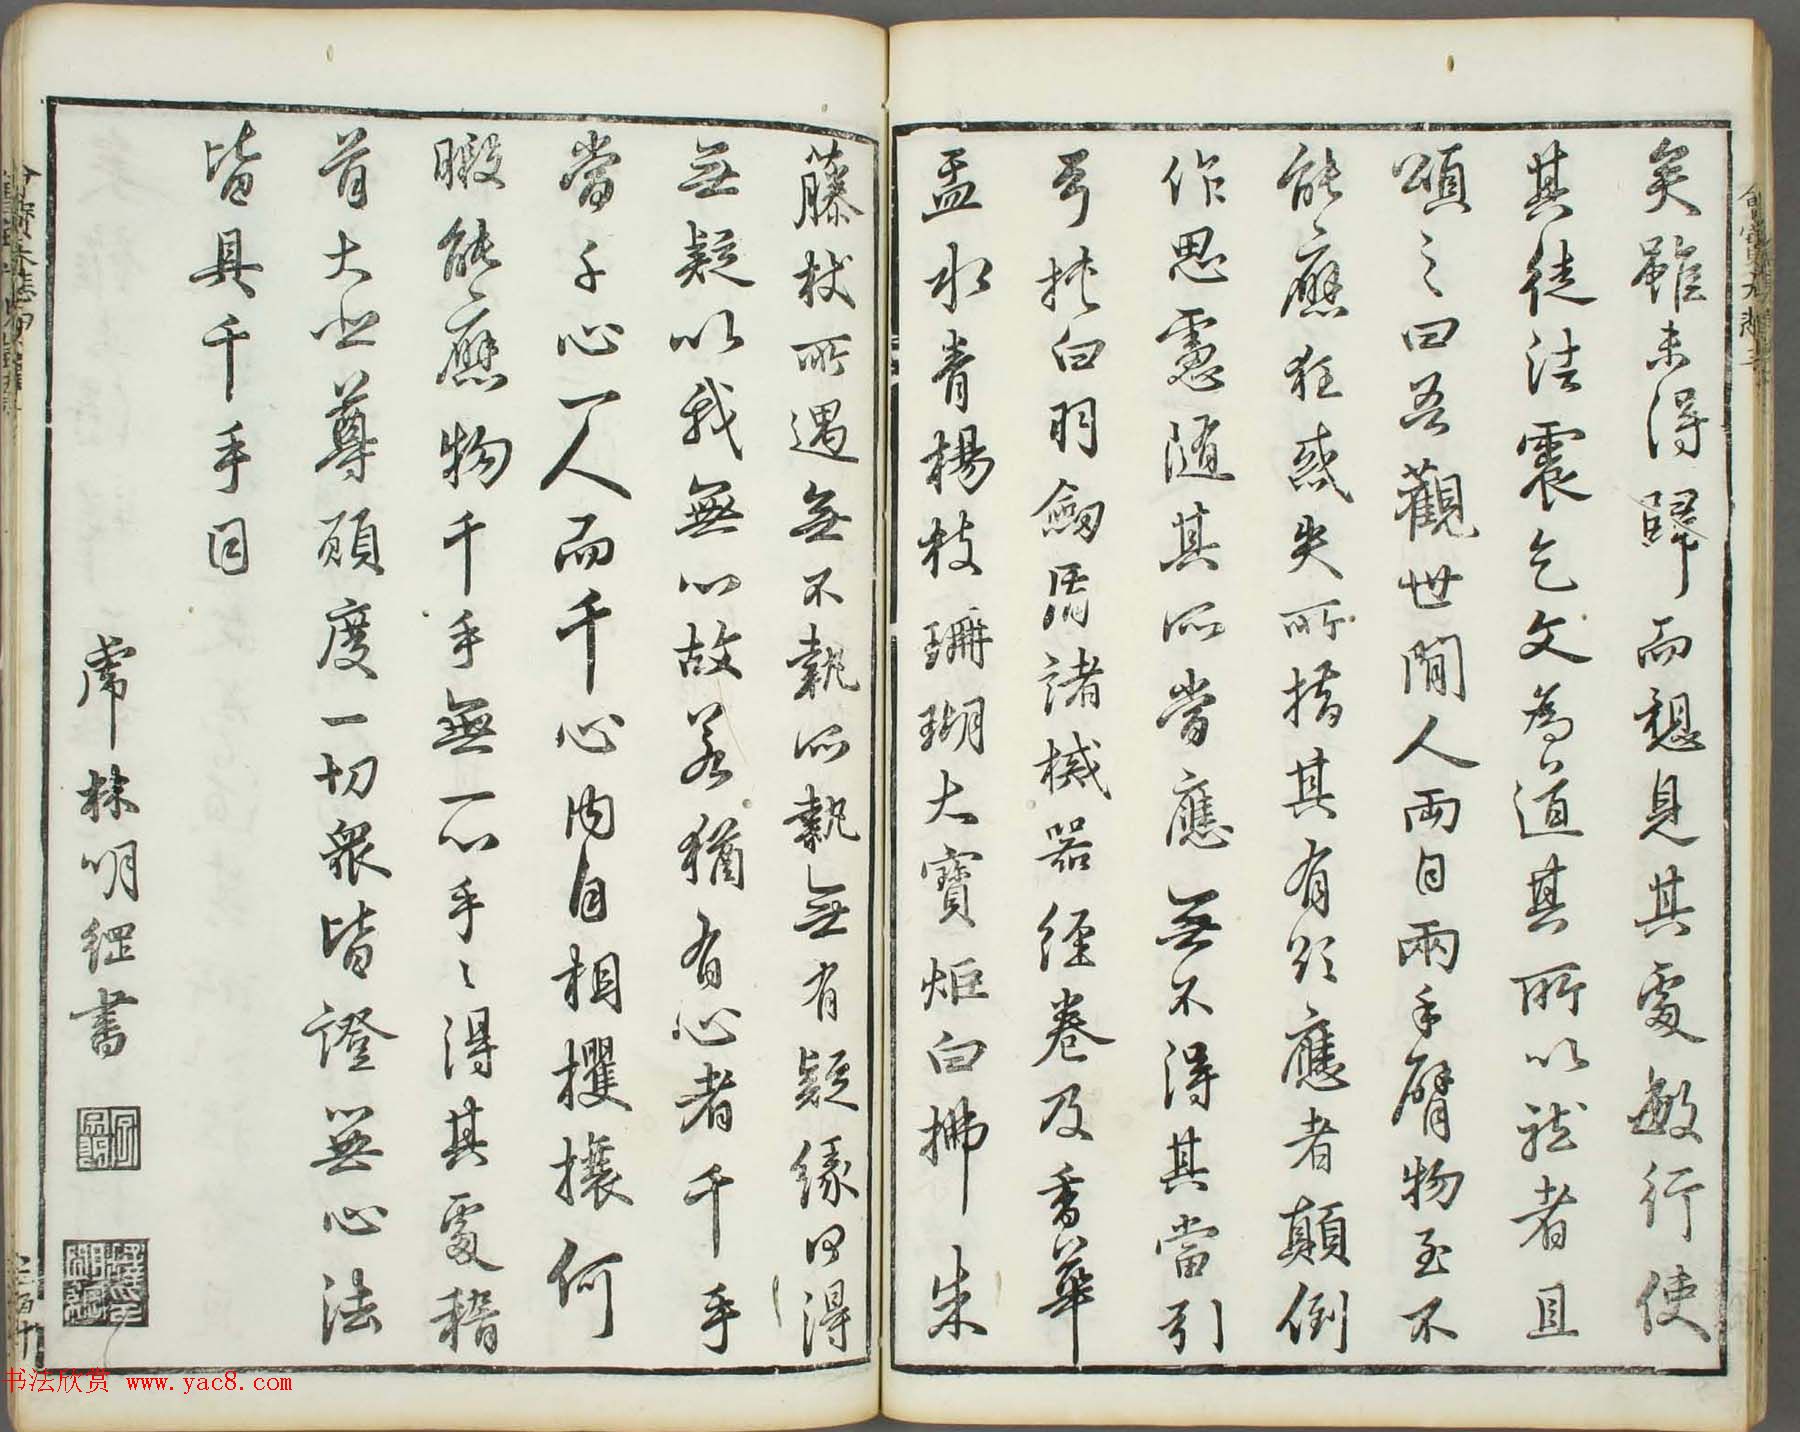 矣雖未得歸而想見其處敏行使
其徒法震乞文為道其所以然者且
頌之曰吾觀世間人兩目兩手臂物至不
能應狂惑失所措其有欲應者顛倒
作思慮隨其所當應無不得其當引
弓挾白羽劒盾諸械器經卷及香華
盂水青楊枝珊瑚大寶炬白拂朱
藤杖所遇無不執所執無有疑緣何得
無疑以我無心故若猶有心者千手
當千心一人而千心內自相攫攘何
暇能應物千手無一心手々得其處稽
首大悲尊願度一切衆皆證無心法
皆具千手目
虎林明綱書
书法欣赏 www.yac8.com